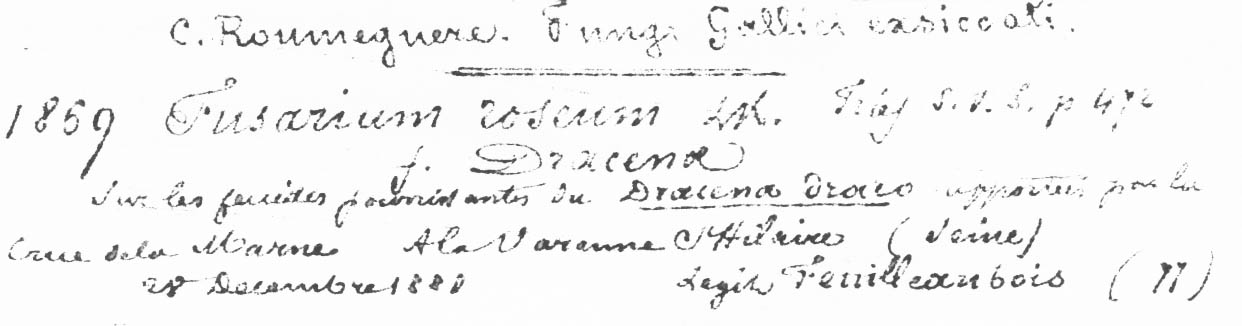 C. Roumeguere. Fungi Gallici exsiccati.
1869 Fusarium roseum LK. S. V. S. p 472
f. Dracena
Sur les feuilles pourrissantes du Dracena draco apportées par la
Crue dela Marne A la Varenne St Hilaire (Seine)
28 Decembre 1881 Legit Feuilleaubois (77)